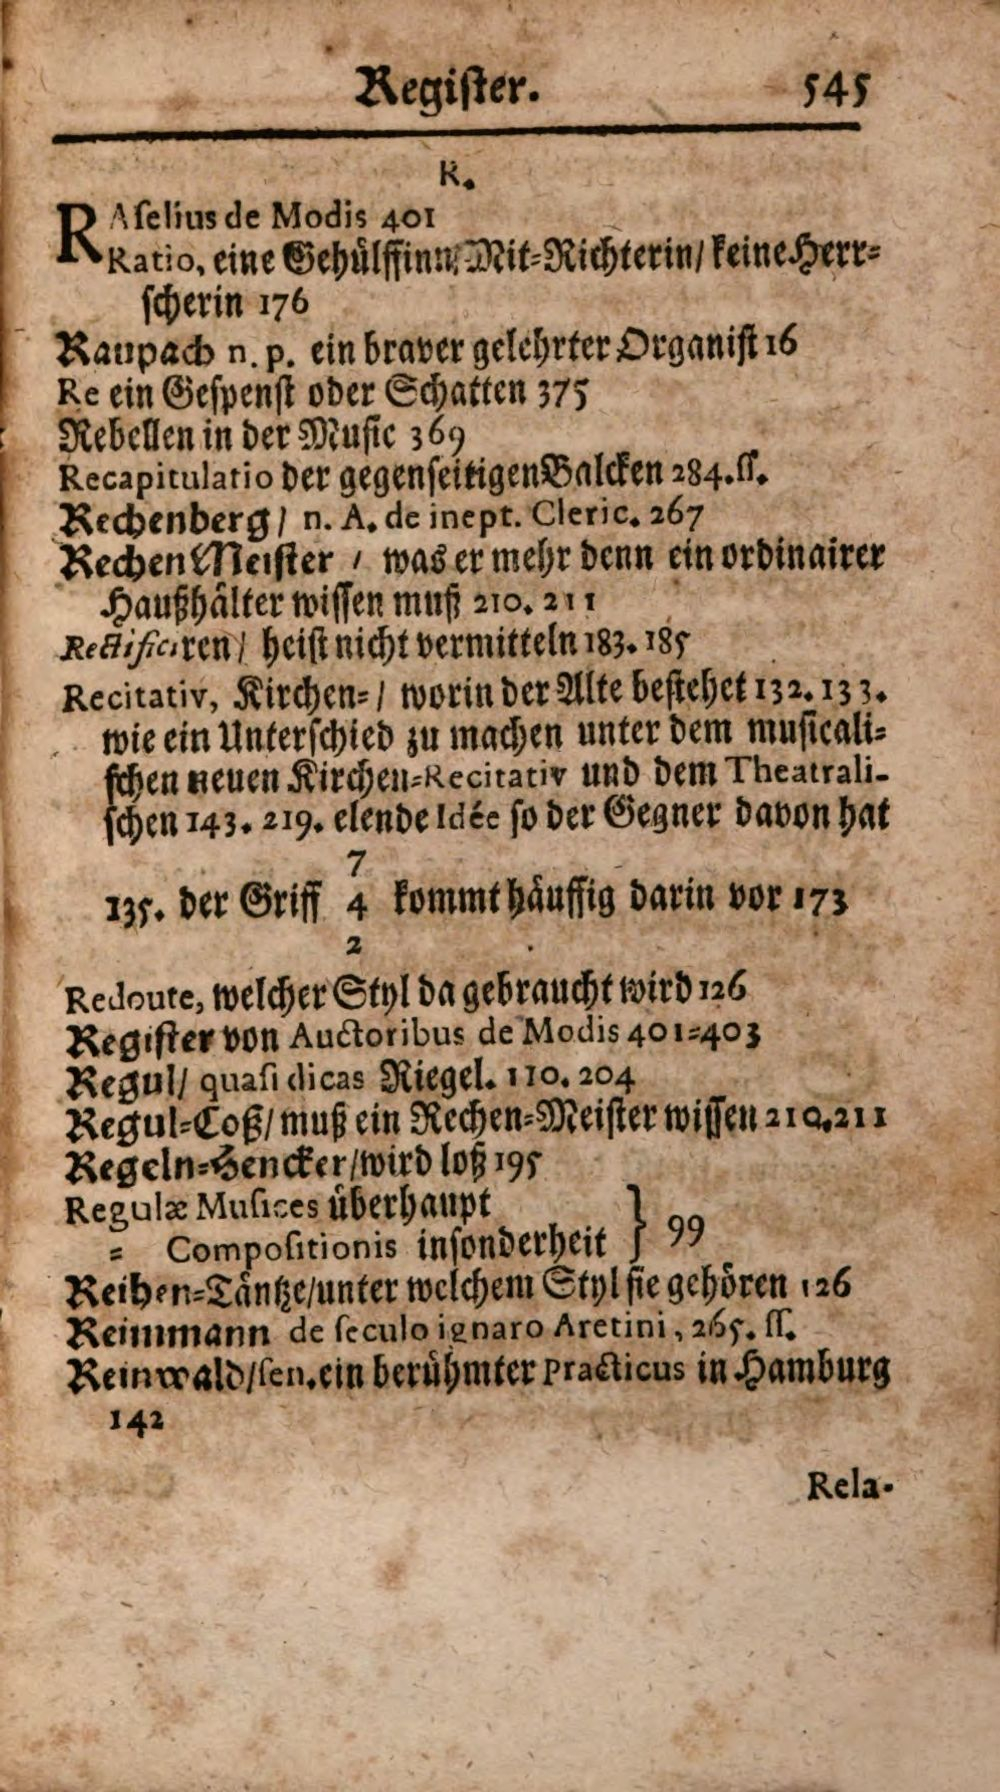 Regiſter. 545
R.
RAſelius de Modis 401
Ratio, eine Gehülffinn, Mit-Richterin/ keine Herr-
ſcherin 176
Raupach n. p. ein braver gelehrter Organiſt 16
Re ein Geſpenſt oder Schatten 375
Rebellen in der Muſic 369
Recapitulatio der gegenſeitigen Balcken 284. ſſ.
Rechenberg/ n. A. de inept. Cleric. 267
Rechen Meiſter / was er mehr denn ein ordinairer
Haußhälter wiſſen muß 210. 211
Rectificiren/ heiſt nicht vermitteln 183. 185
Recitativ, Kirchen-/ worin der Alte beſtehet 132. 133.
wie ein Unterſchied zu machen unter dem muſicali-
ſchen neuen Kirchen-Recitativ und dem Theatrali-
ſchen 143. 219. elende Idée ſo der Gegner davon hat
7
135. der Griff 4 kommt häuffig darin vor 173
2
Redoute, welcher Styl da gebraucht wird 126
Regiſter von Auctoribus de Modis 401-403
Regul/ quaſi dicas Riegel. 110. 204
Regul-Coß/ muß ein Rechen-Meiſter wiſſen 210.211
Regeln-Hencker/wird loß 195
Regulæ Muſices überhaupt
- Compoſitionis inſonderheit } 99
Reihen-Täntze/unter welchem Styl ſie gehören 126
Reimmann de ſeculo ignaro Aretini, 265. ſſ.
Reinwald/ſen. ein berühmter Practicus in Hamburg
142
Rela-